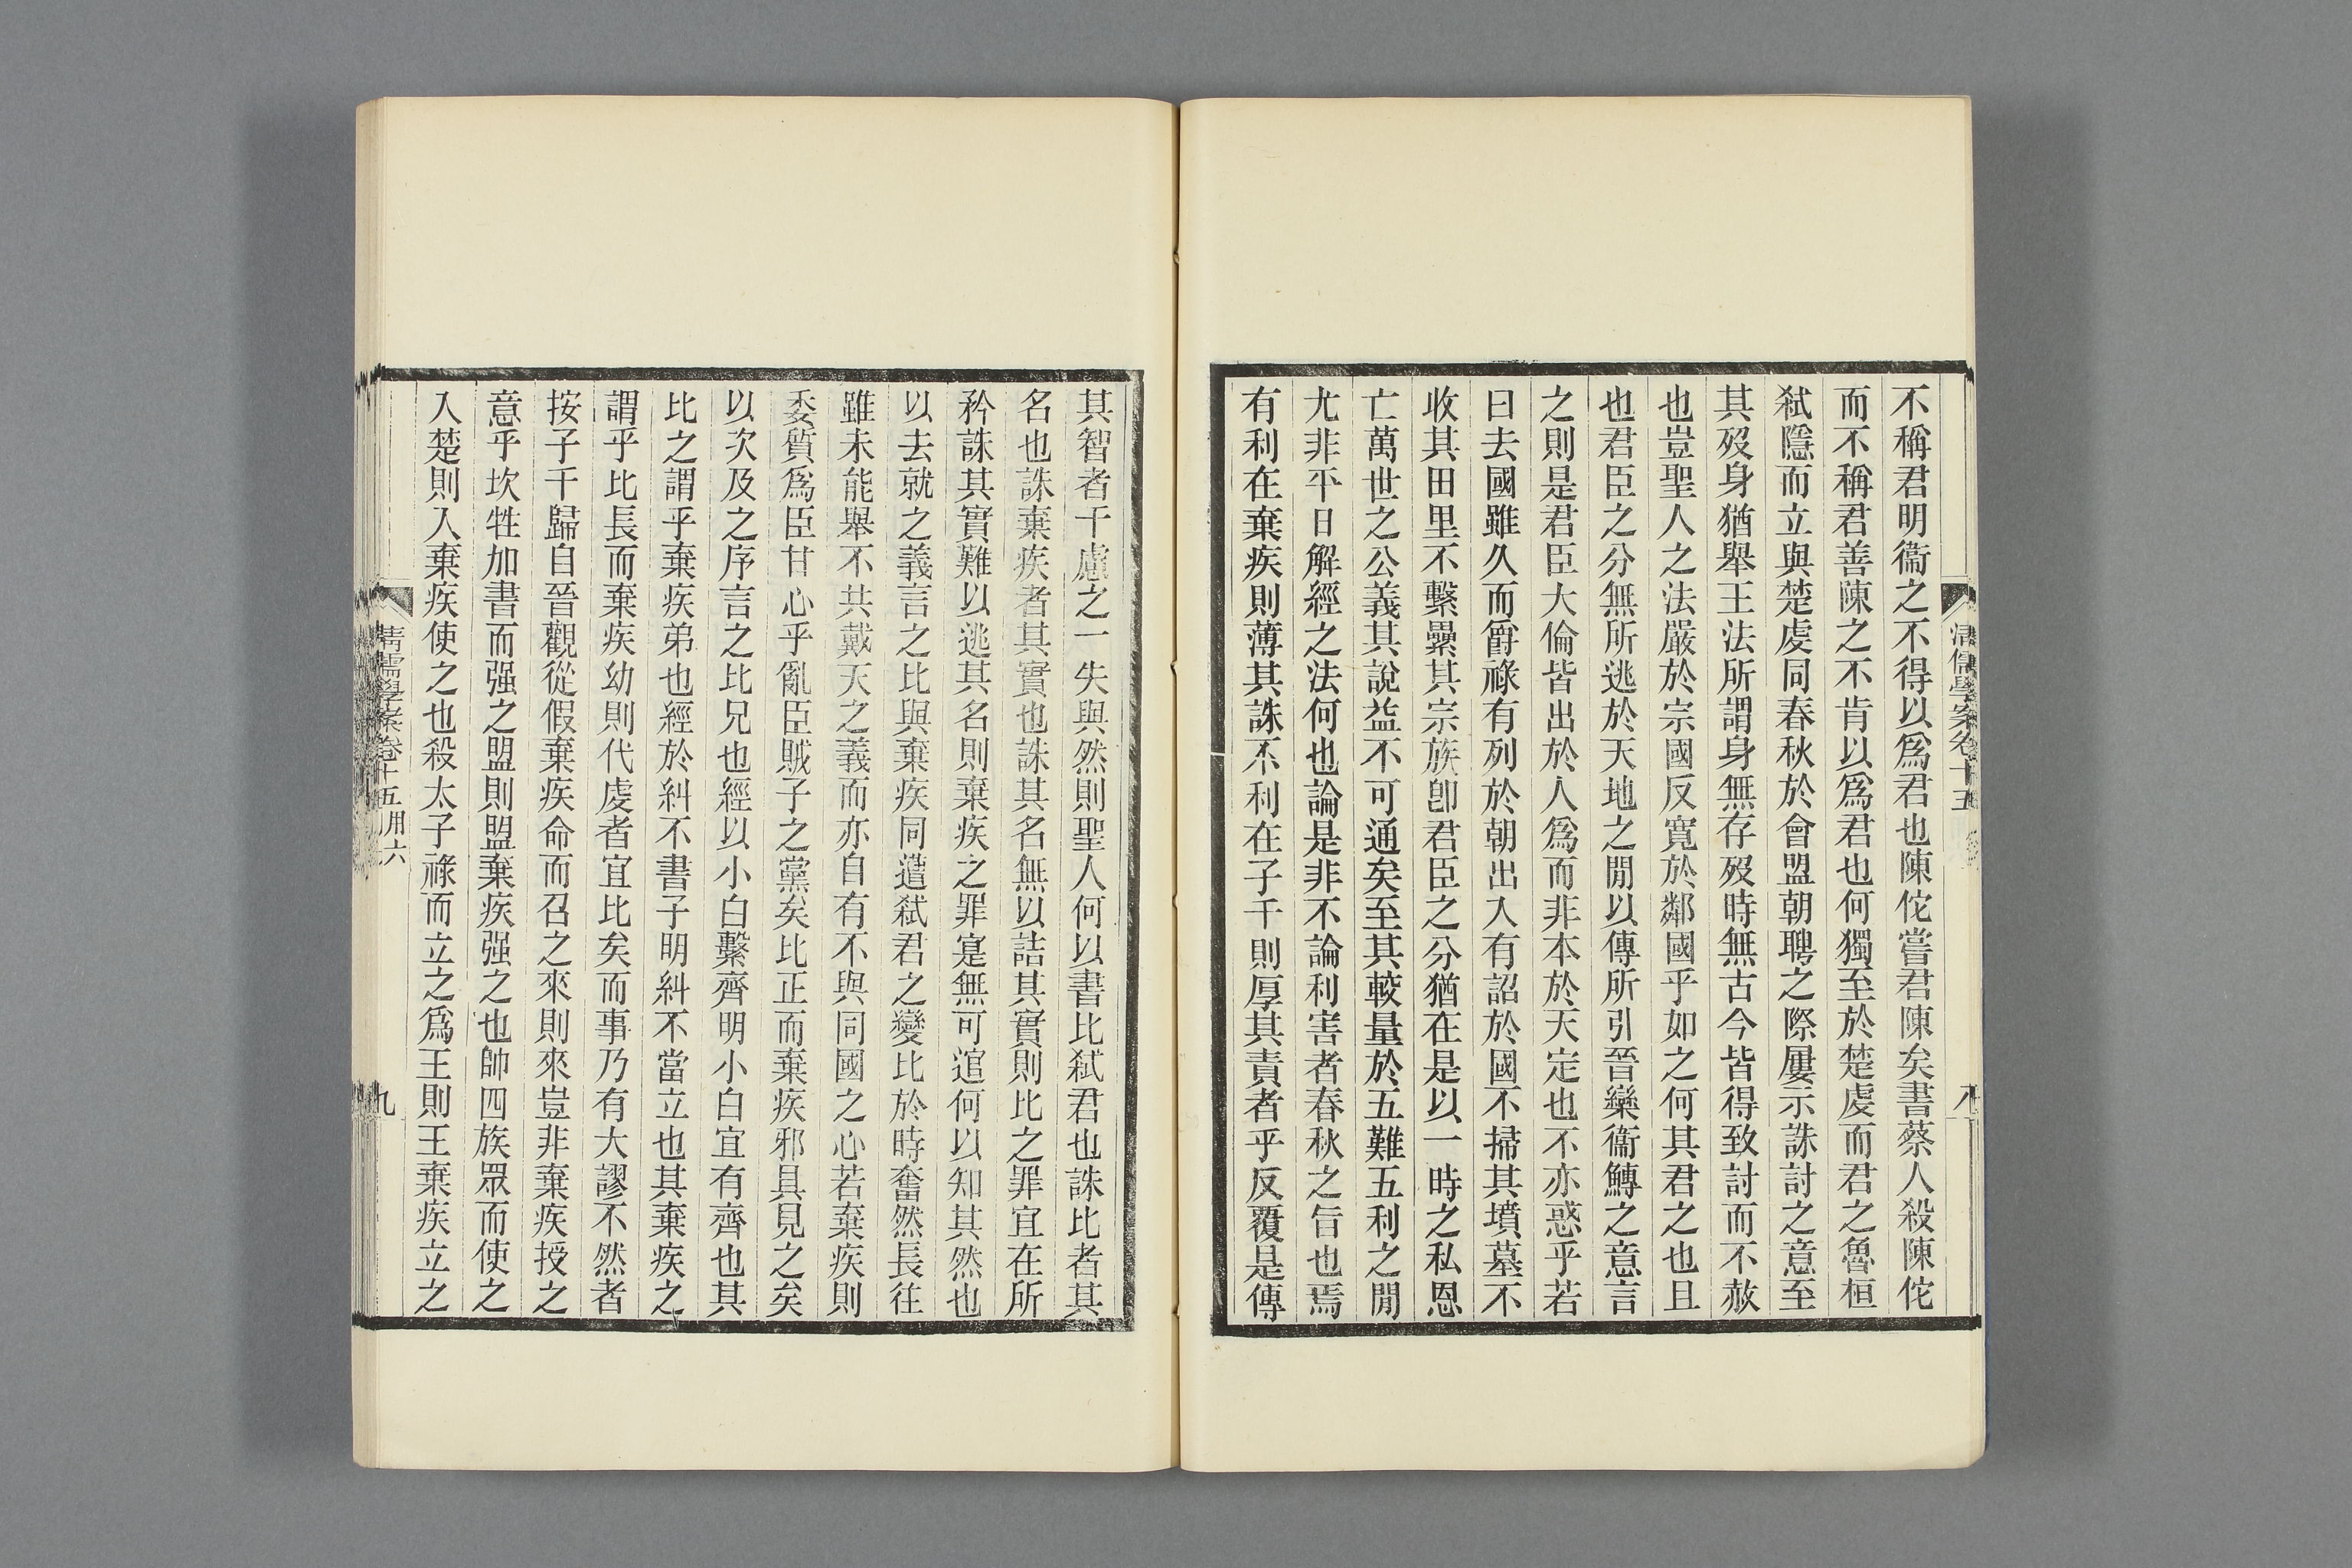 清儒學案卷十五
八
不稱君明衞之不得以爲君也陳佗嘗君陳矣書蔡人殺陳佗
而不稱君善陳之不肯以爲君也何獨至於楚虔而君之魯桓
弑隱而立與楚虔同春秋於會盟朝聘之際屢示誅討之意至
其歿身猶舉王法所謂身無存歿時無古今皆得致討而不赦
也豈聖人之法嚴於宗國反寬於鄰國乎如之何其君之也且
也君臣之分無所逃於天地之閒以傳所引晉欒衞鱄之意言
之則是君臣大倫皆出於人爲而非本於天定也不亦惑乎若
曰去國雖久而爵祿有列於朝出入有詔於國不掃其墳墓不
收其田里不繫纍其宗族卽君臣之分猶在是以一時之私恩
亡萬世之公義其說益不可通矣至其較量於五難五利之閒
尤非平日解經之法何也論是非不論利害者春秋之旨也焉
有利在棄疾則薄其誅不利在子干則厚其責者乎反覆是傳
其智者千慮之一失與然則聖人何以書比弑君也誅比者其
名也誅棄疾者其實也誅其名無以詰其實則比之罪宜在所
矜誅其實難以逃其名則棄疾之罪寔無可逭何以知其然也
以去就之義言之比與棄疾同遭弑君之變比於時奮然長往
雖未能舉不共戴天之義而亦自有不與同國之心若棄疾則
委質爲臣甘心乎亂臣賊子之黨矣比正而棄疾邪具見之矣
以次及之序言之比兄也經以小白繫齊明小白宜有齊也其
比之謂乎棄疾弟也經於糾不書子明糾不當立也其棄疾之
謂乎比長而棄疾幼則代虔者宜比矣而事乃有大謬不然者
按子干歸自晉觀從假棄疾命而召之來則來豈非棄疾授之
意乎坎牲加書而强之盟則盟棄疾强之也帥四族眾而使之
入楚則入棄疾使之也殺太子祿而立之爲王則王棄疾立之
清儒學案卷十五用六
九